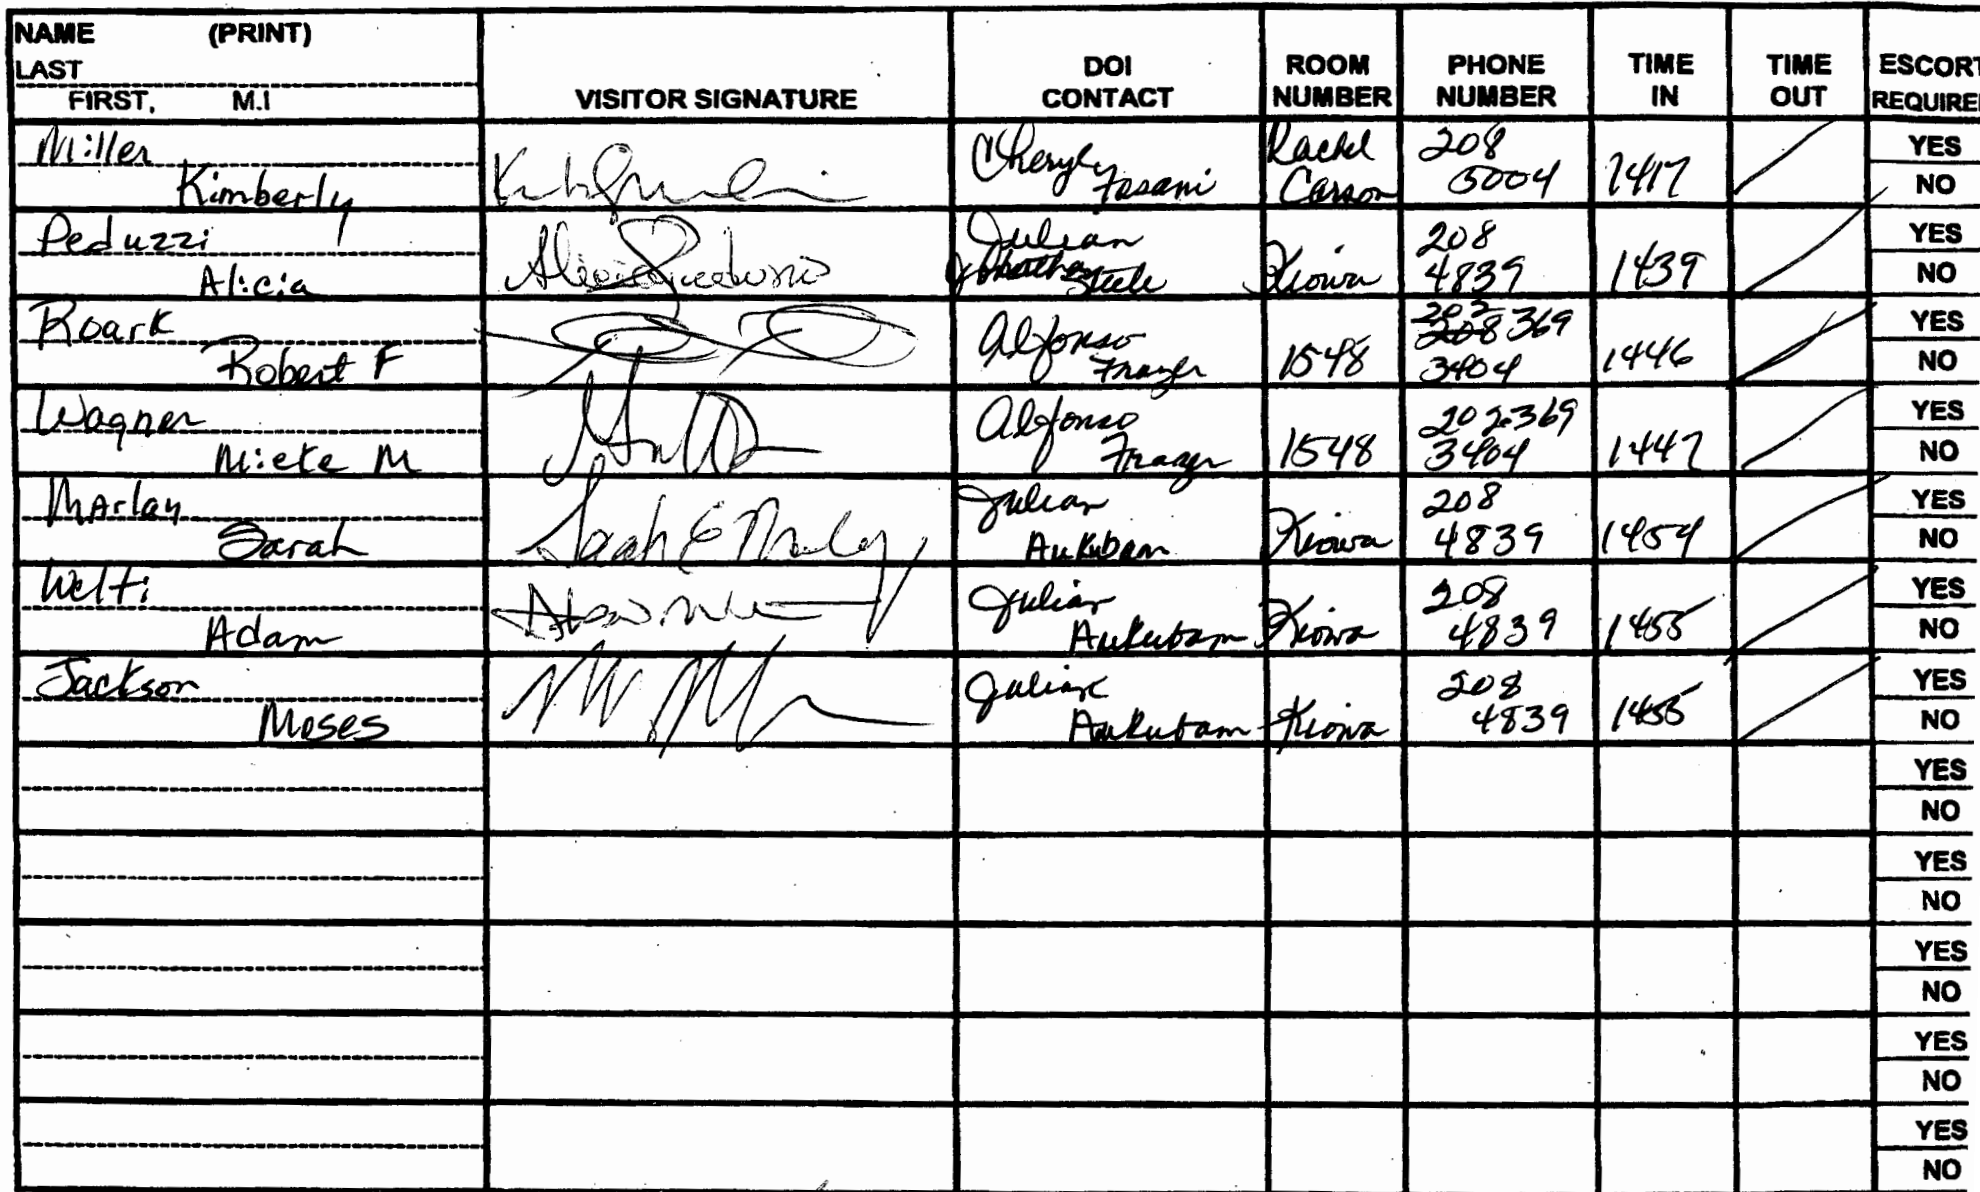 NAME (PRINT)
LAST
FIRST, M.I
VISITOR SIGNATURE
DOI
CONTACT
ROOM
NUMBER
PHONE
NUMBER
TIME
IN
TIME
OUT
ESCORT
REQUIRE
Miller
Kimberly
Cheryl
Fasani
Rachel
Carson
208
5004
1417
YES
NO
Peduzzi
Alicia
Julian
Steele
Kiowa
208
4839
1439
YES
NO
Roark
Robert F
Alfonso
Frazer
1548
202
208 369
3404
1446
YES
NO
Wagner
Mieke M
Alfonso
Frazer
1548
202-369
3404
1447
YES
NO
Marlay
Sarah
Sarah E Marlay
Julian
Aukubam
Kiowa
208
4839
1454
YES
NO
Welti
Adam
Julian
Aukubam
Kiowa
208
4839
1455
YES
NO
Jackson
Moses
Julian
Aukubam
Kiowa
208
4839
1455
YES
NO
YES
NO
YES
NO
YES
NO
YES
NO
YES
NO